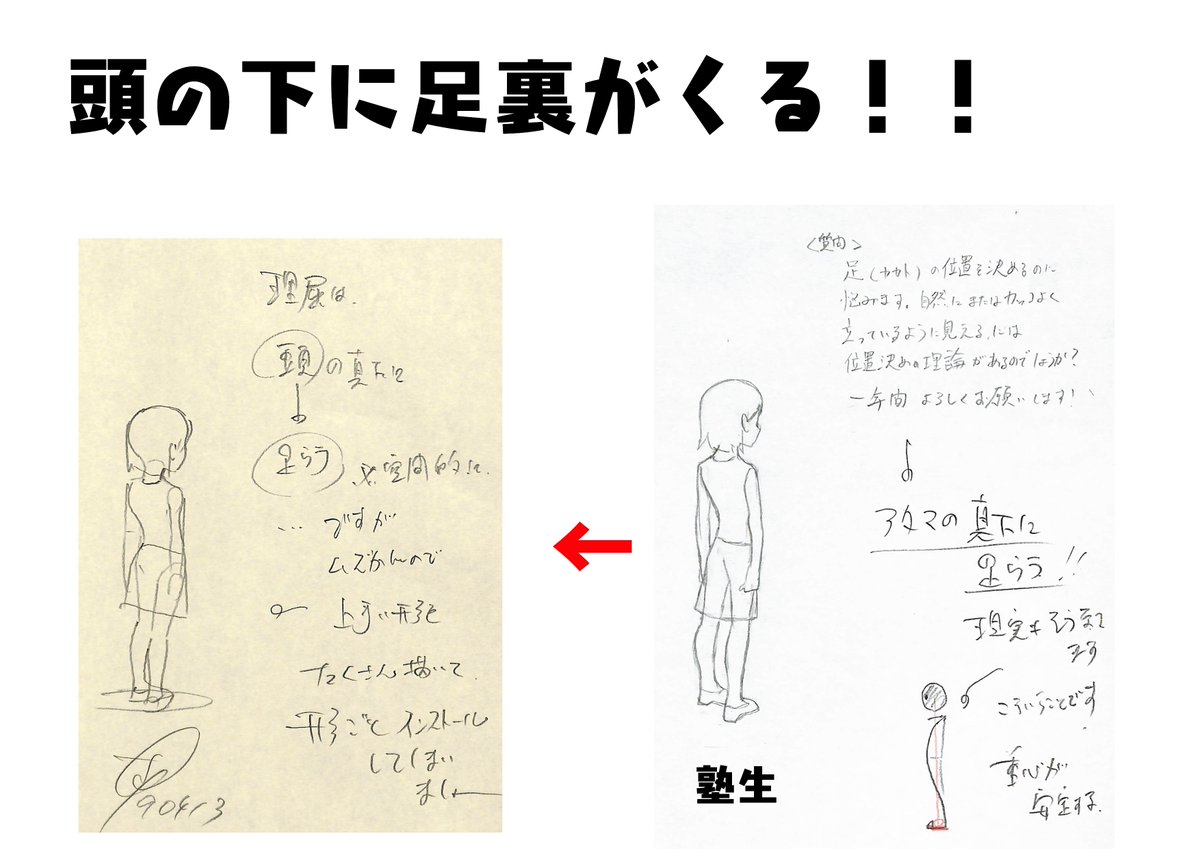 頭の下に足裏がくる！！
<質問>
足(カカト)の位置を決めるのに
悩みます。自然にまたはカッコよく
立っているように見えるには
位置決めの理論があるのでしょうか？
一年間 よろしくお願いします！
アタマの真下に
足うら!!
現実もそうなって
ます
こういうことです
重心が
安定する.
塾生
理屈は、
頭の真下に
足うら ※空間的に.
… ですが
ムズかしいので
上手い形を
たくさん描いて.
形ごとインストール
してしまい
ましょー
190413